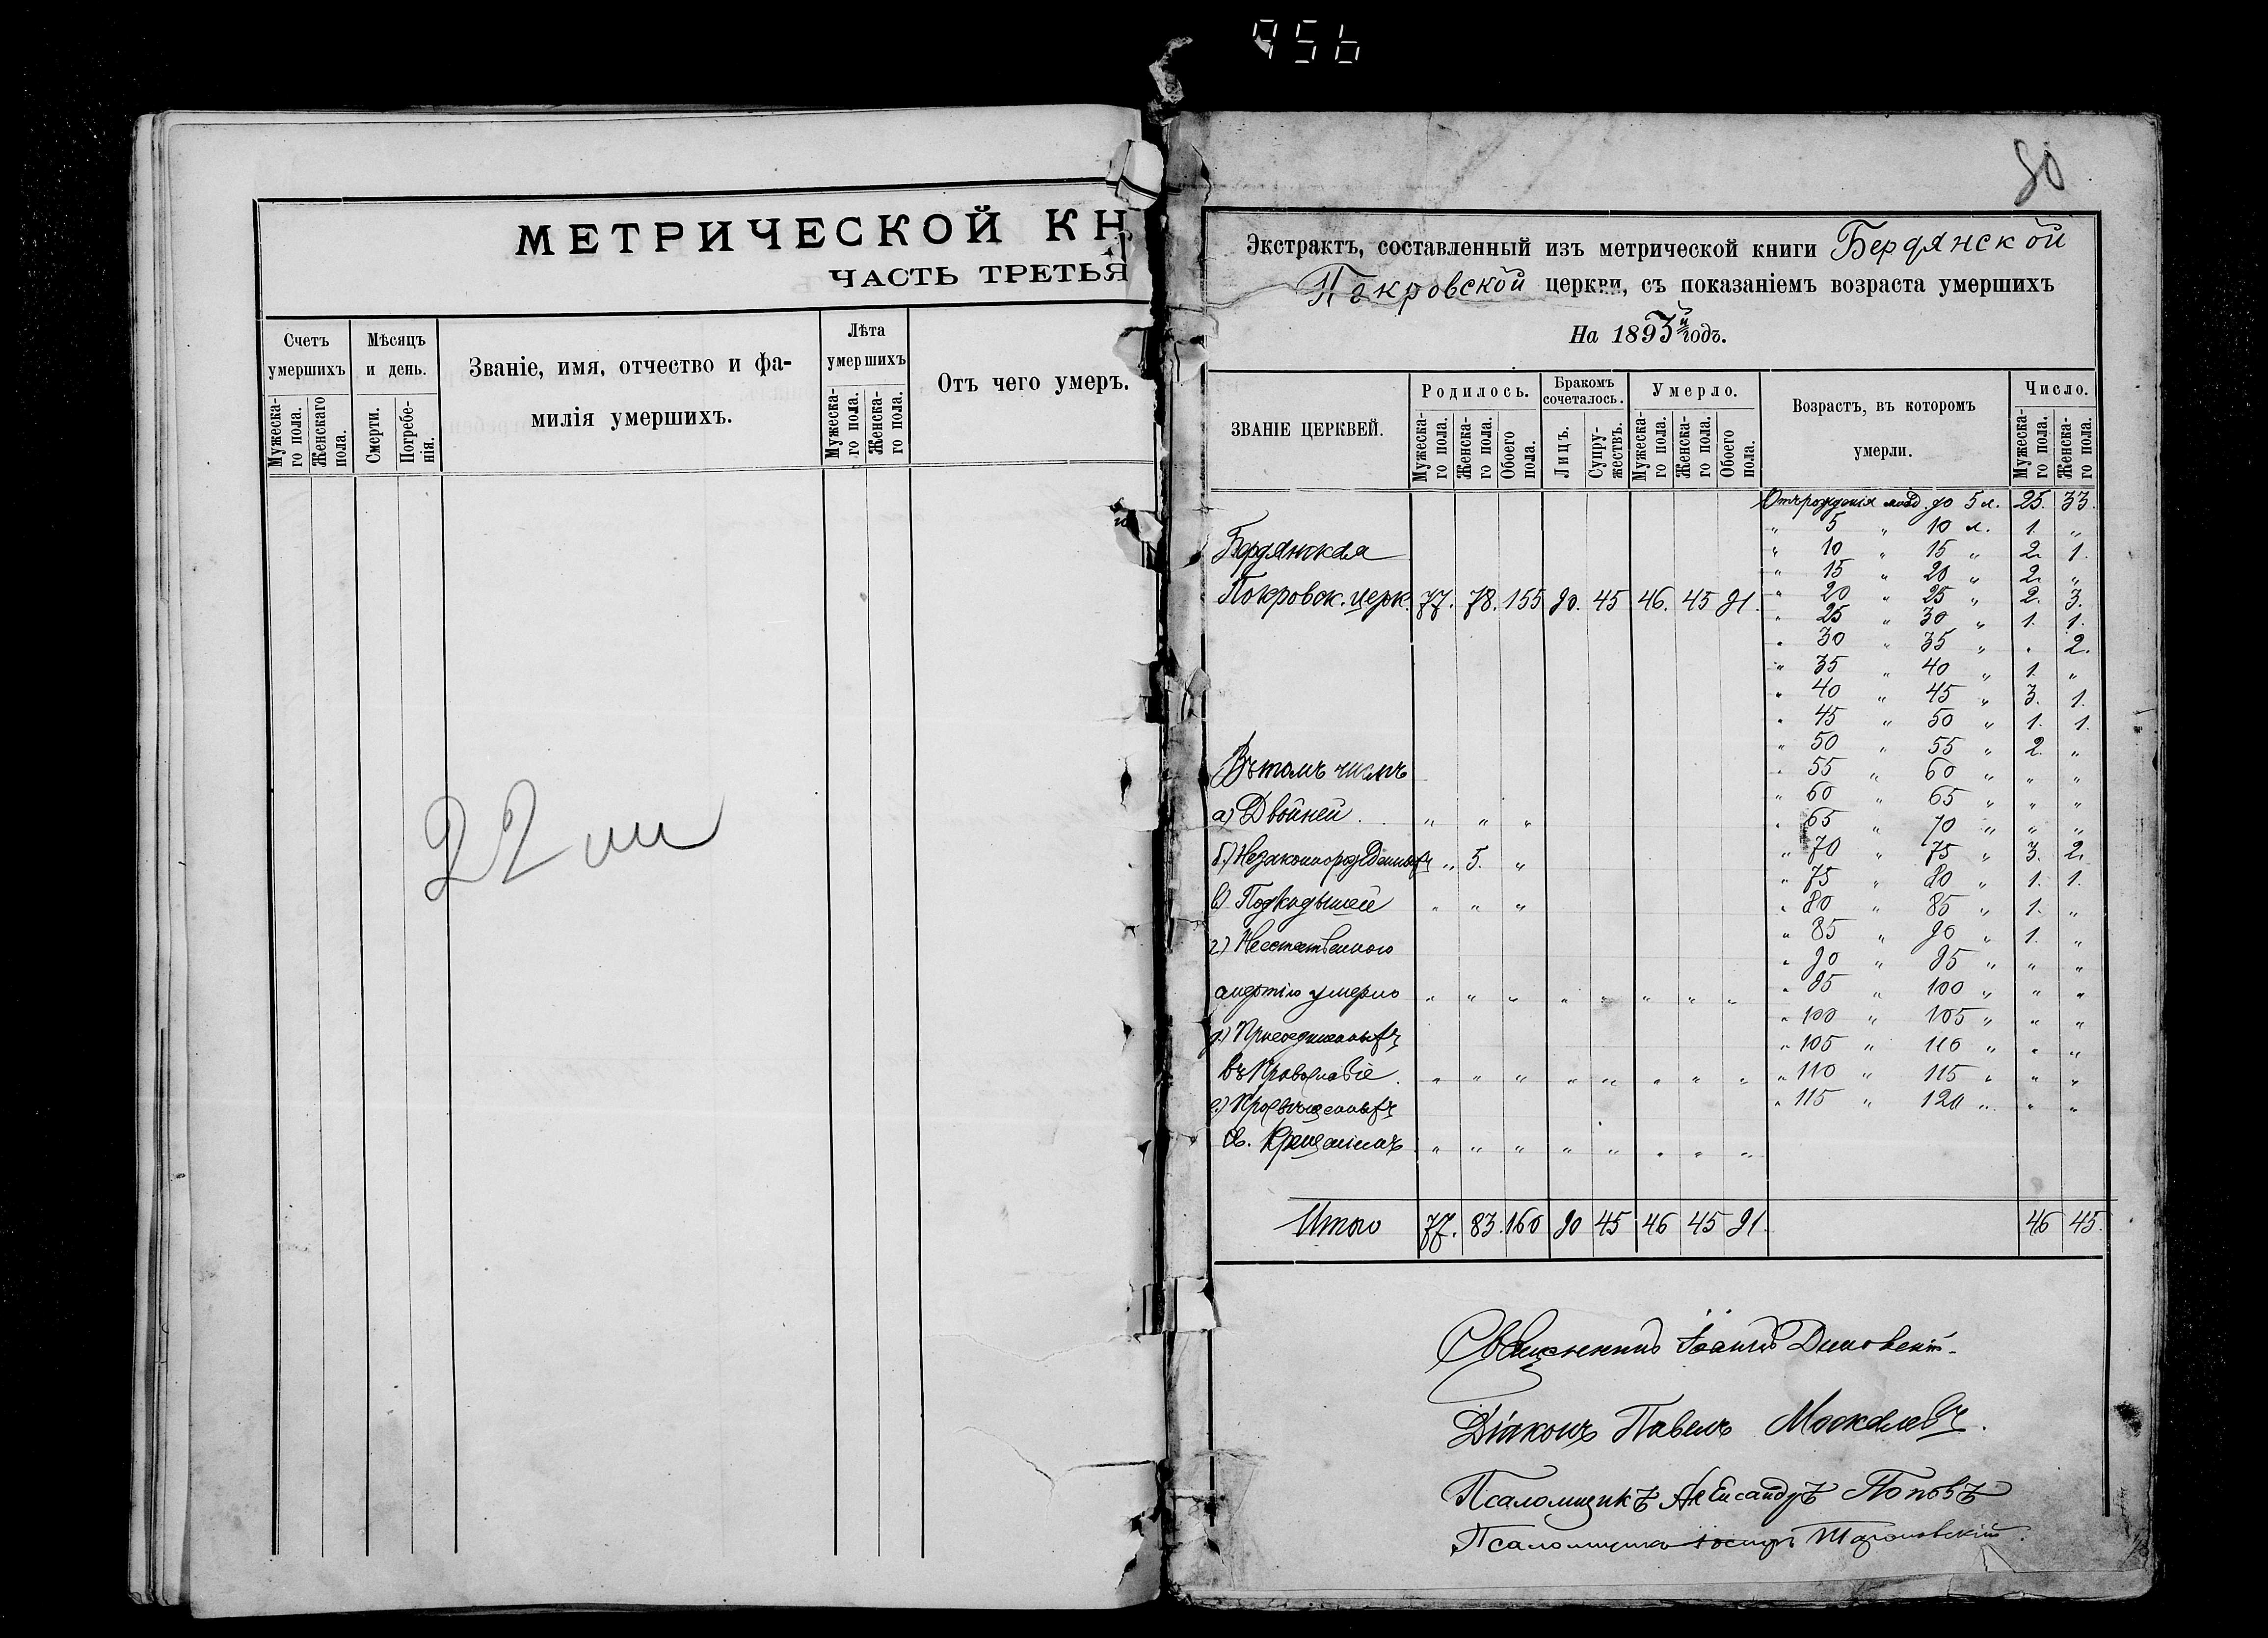 956
МЕТРИЧЕСКОЙ КН
ЧАСТЬ ТРЕТЬЯ
Счетъ умершихъ
Мужеска-го пола.
Женскаго пола.
Мѣсяцъ и день.
Смерти.
Погребе-нія.
Званіе, имя, отчество и фа-
милія умершихъ.
Лѣта умершихъ
Мужеска-го пола.
Женска-го пола.
Отъ чего умеръ.
22
80
Экстрактъ, составленный изъ метрической книги Бердянской
Покровской церкви, съ показаніемъ возраста умершихъ
На 1893й годъ.
ЗВАНІЕ ЦЕРКВЕЙ.
Родилось.
Мужеска-го пола.
Женска-го пола.
Обоего пола.
Бракомъ сочеталось.
Лицъ.
Супру-жествъ.
Умерло.
Мужеска-го пола.
Женска-го пола.
Обоего пола.
Возрастъ, въ которомъ
умерли.
Число.
Мужеска-го пола.
Женска-го пола.
Отъ рожденія млад. до 5 л. 25. 33.
" 5 " 10 л. 1. "
" 10 " 15 " 2. 1.
" 15 " 20 " 2. "
" 20 " 25 " 2. 3.
" 25 " 30 " 1. 1.
" 30 " 35 " " 2.
" 35 " 40 " 1. "
" 40 " 45 " 3. 1.
" 45 " 50 " 1. 1.
" 50 " 55 " 2. "
" 55 " 60 " " "
" 60 " 65 " " "
" 65 " 70 " " "
" 70 " 75 " 3. 2.
" 75 " 80 " 1. 1.
" 80 " 85 " 1. "
" 85 " 90 " 1. "
" 90 " 95 " " "
" 95 " 100 " " "
" 100 " 105 " " "
" 105 " 110 " " "
" 110 " 115 " " "
" 115 " 120 " " "
Бердянская
Покровск. церк. 77. 78. 155 90. 45 46. 45 91.
Въ томъ числѣ
а) Двойней " " "
б) Незаконнорожденныхъ " 5. "
в) Подкидышей " " "
г) Неестественною
смертію умерло " " " " " " " "
д) Присоединенныхъ
въ Православіе " " " " " " " "
е) Просвѣщенныхъ
Св. Крещеніемъ " " " " " " " "
Итого 77. 83. 160 90 45 46 45 91. 46 45.
Священникъ Іоаннъ
Діаконъ Павелъ Москалевъ.
Псаломщикъ Александръ Поповъ
Псаломщикъ